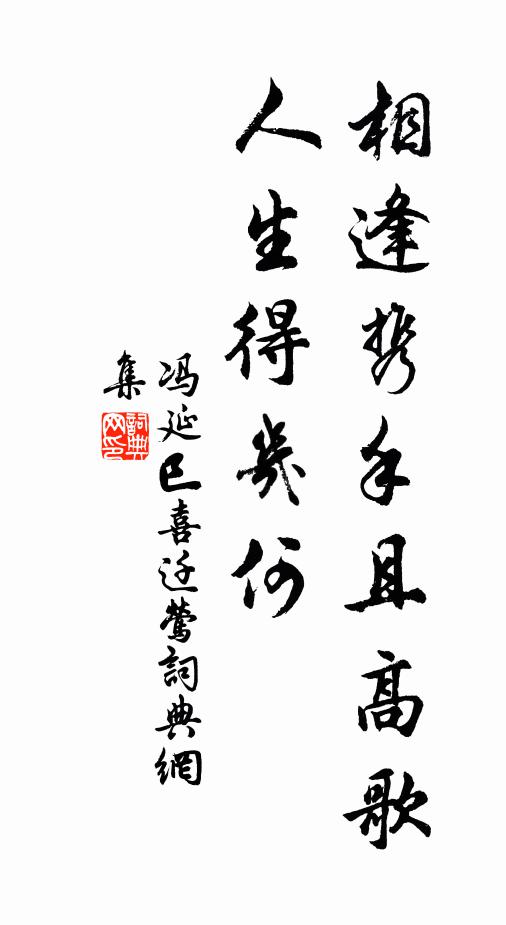 相逢携手且高歌
人生得幾何
冯延巳喜迁莺詞典網
集
詞典
网印